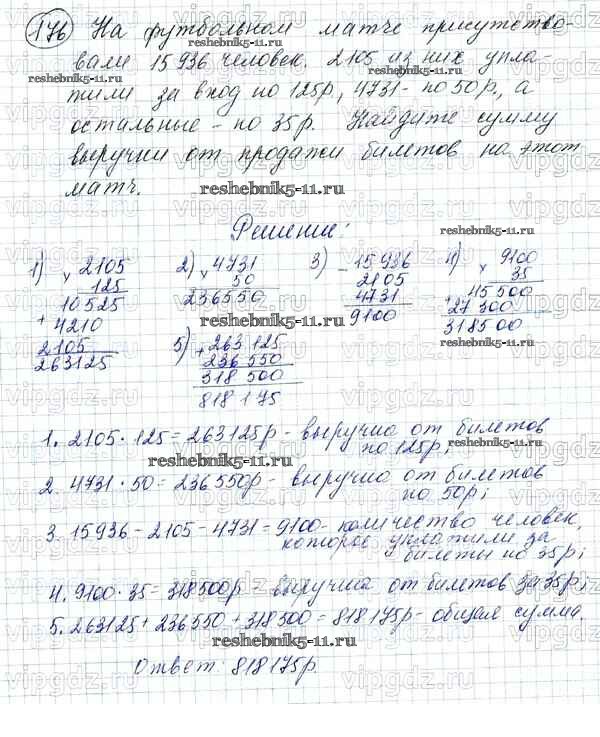 176 На футбольном матче присутство-
вали 15936 человек. 2105 из них упла-
тили за вход по 125р, 4731 - по 50р, а
остальные - по 35р. Найдите сумму
выручки от продажи билетов на этот
матч.
Решение:
1) × 2105
125
10525
+ 4210
2105
263125
2) × 4731
50
236550
3) - 15936
2105
4731
9100
4) × 9100
35
+ 45500
27300
318500
5) + 263 125
236 550
318 500
818 175
1. 2105 · 125 = 263125р - выручка от билетов
по 125р;
2. 4731 · 50 = 236550р - выручка от билетов
по 50р;
3. 15936 - 2105 - 4731 = 9100 - количество человек,
которое уплатили за
билеты по 35р;
4. 9100 · 35 = 318500р - выручка от билетов за 35р;
5. 263125 + 236550 + 318500 = 818175р - общая сумма.
Ответ: 818175р.
reshebnik5-11.ru
vipgdz.ru